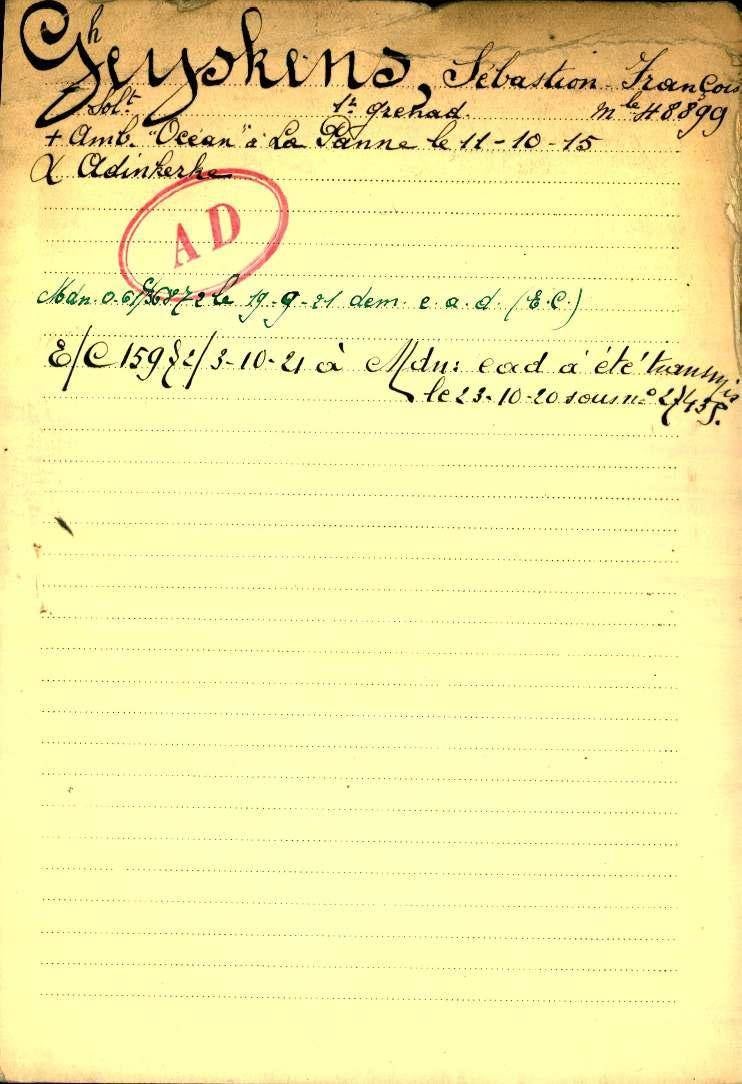 Gheyskens, Sébastien François
Solt 1r grenad. mle 48899
+ Amb. "Océan" à La Panne le 11-10-15
α Adinkerke
AD
Mdn. le 19-9-21 dem. e.a.d. (E.C.)
E/C 3-10-21 à Mdn: ead a été transmis
le 23-10-20 sous no